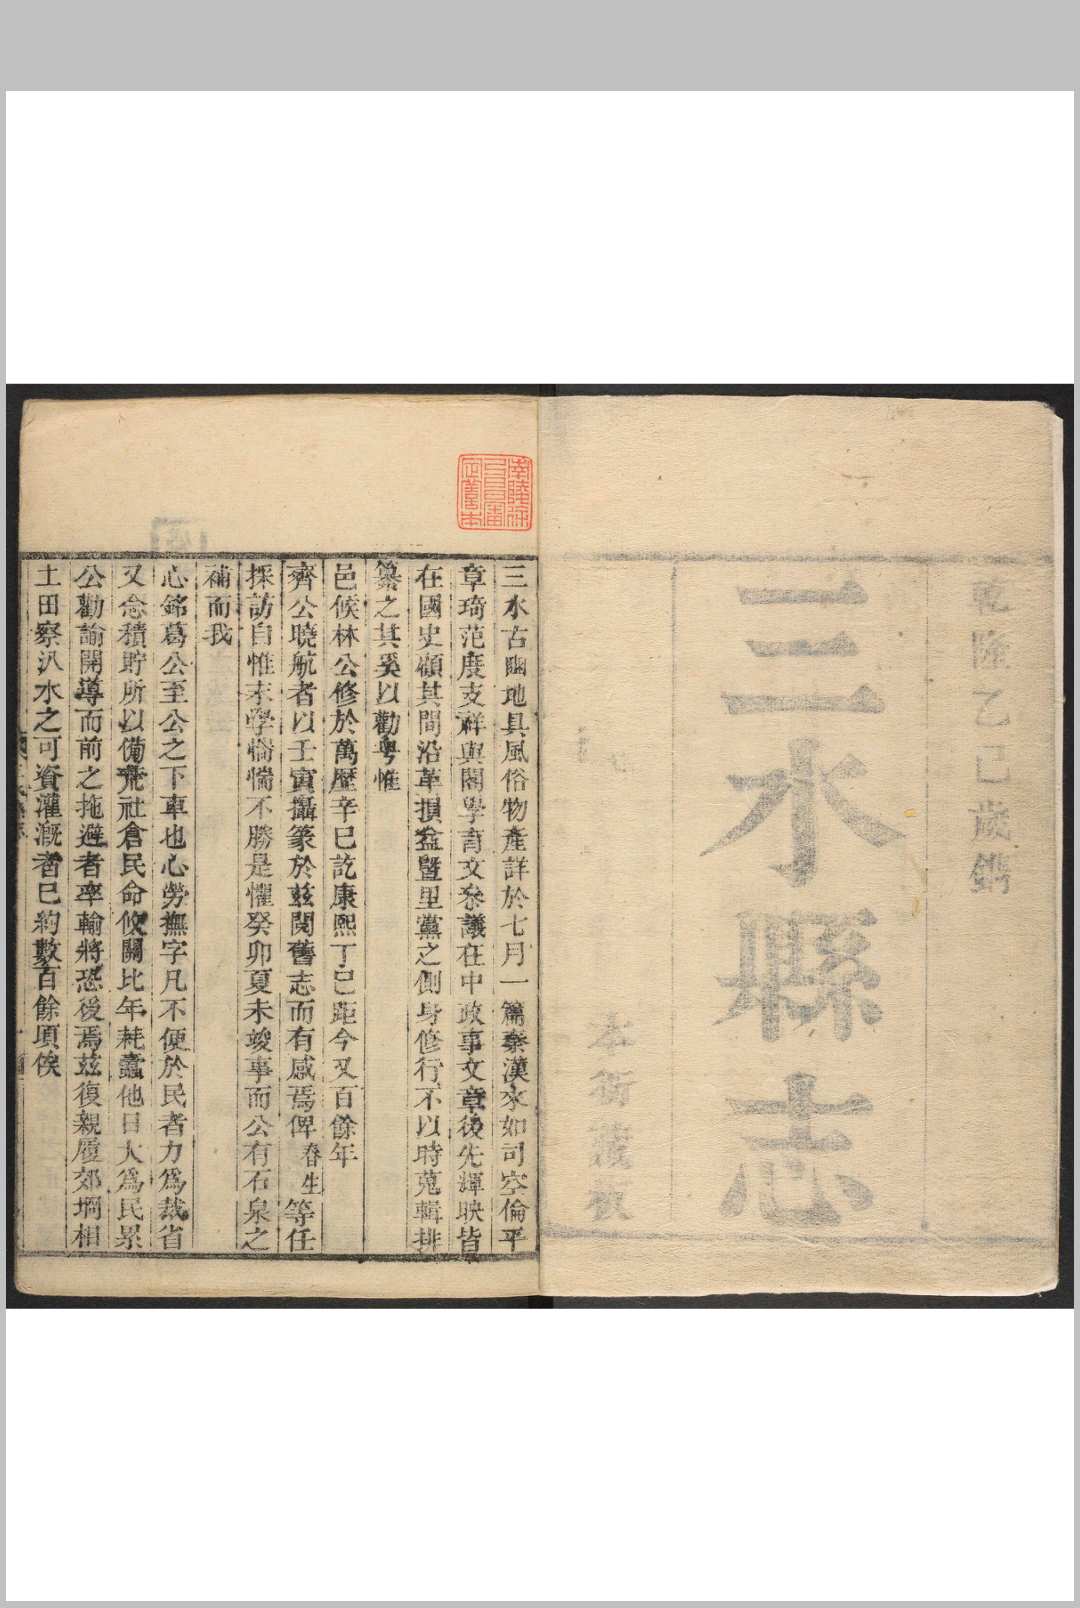 乾隆乙巳歲鐫
三水縣志
本衙藏板
三水古豳地具風俗物產詳於七月一篇秦漢來如司空倫平
章琦范度支祥與閣學育文叅議在中政事文章後先輝映皆
在國史顧其間沿革損益曁里黨之側身修行不以時蒐輯排
纂之其奚以勸粤惟
邑候林公修於萬歷辛巳訖康熙丁巳距今又百餘年
齊公曉航者以壬寅攝篆於兹閱舊志而有感焉俾春生等任
採訪自惟末學惴惴不勝是懼癸卯夏未竣事而公有石泉之
補而我
心銘葛公至公之下車也心勞撫字凡不便於民者力爲裁省
又念積貯所以備荒社倉民命攸關比年耗蠹他日大爲民累
公勸諭開導而前之拖避者率輸將恐後焉兹復親履郊坰相
土田察汃水之可資灌漑者已約數百餘項俟